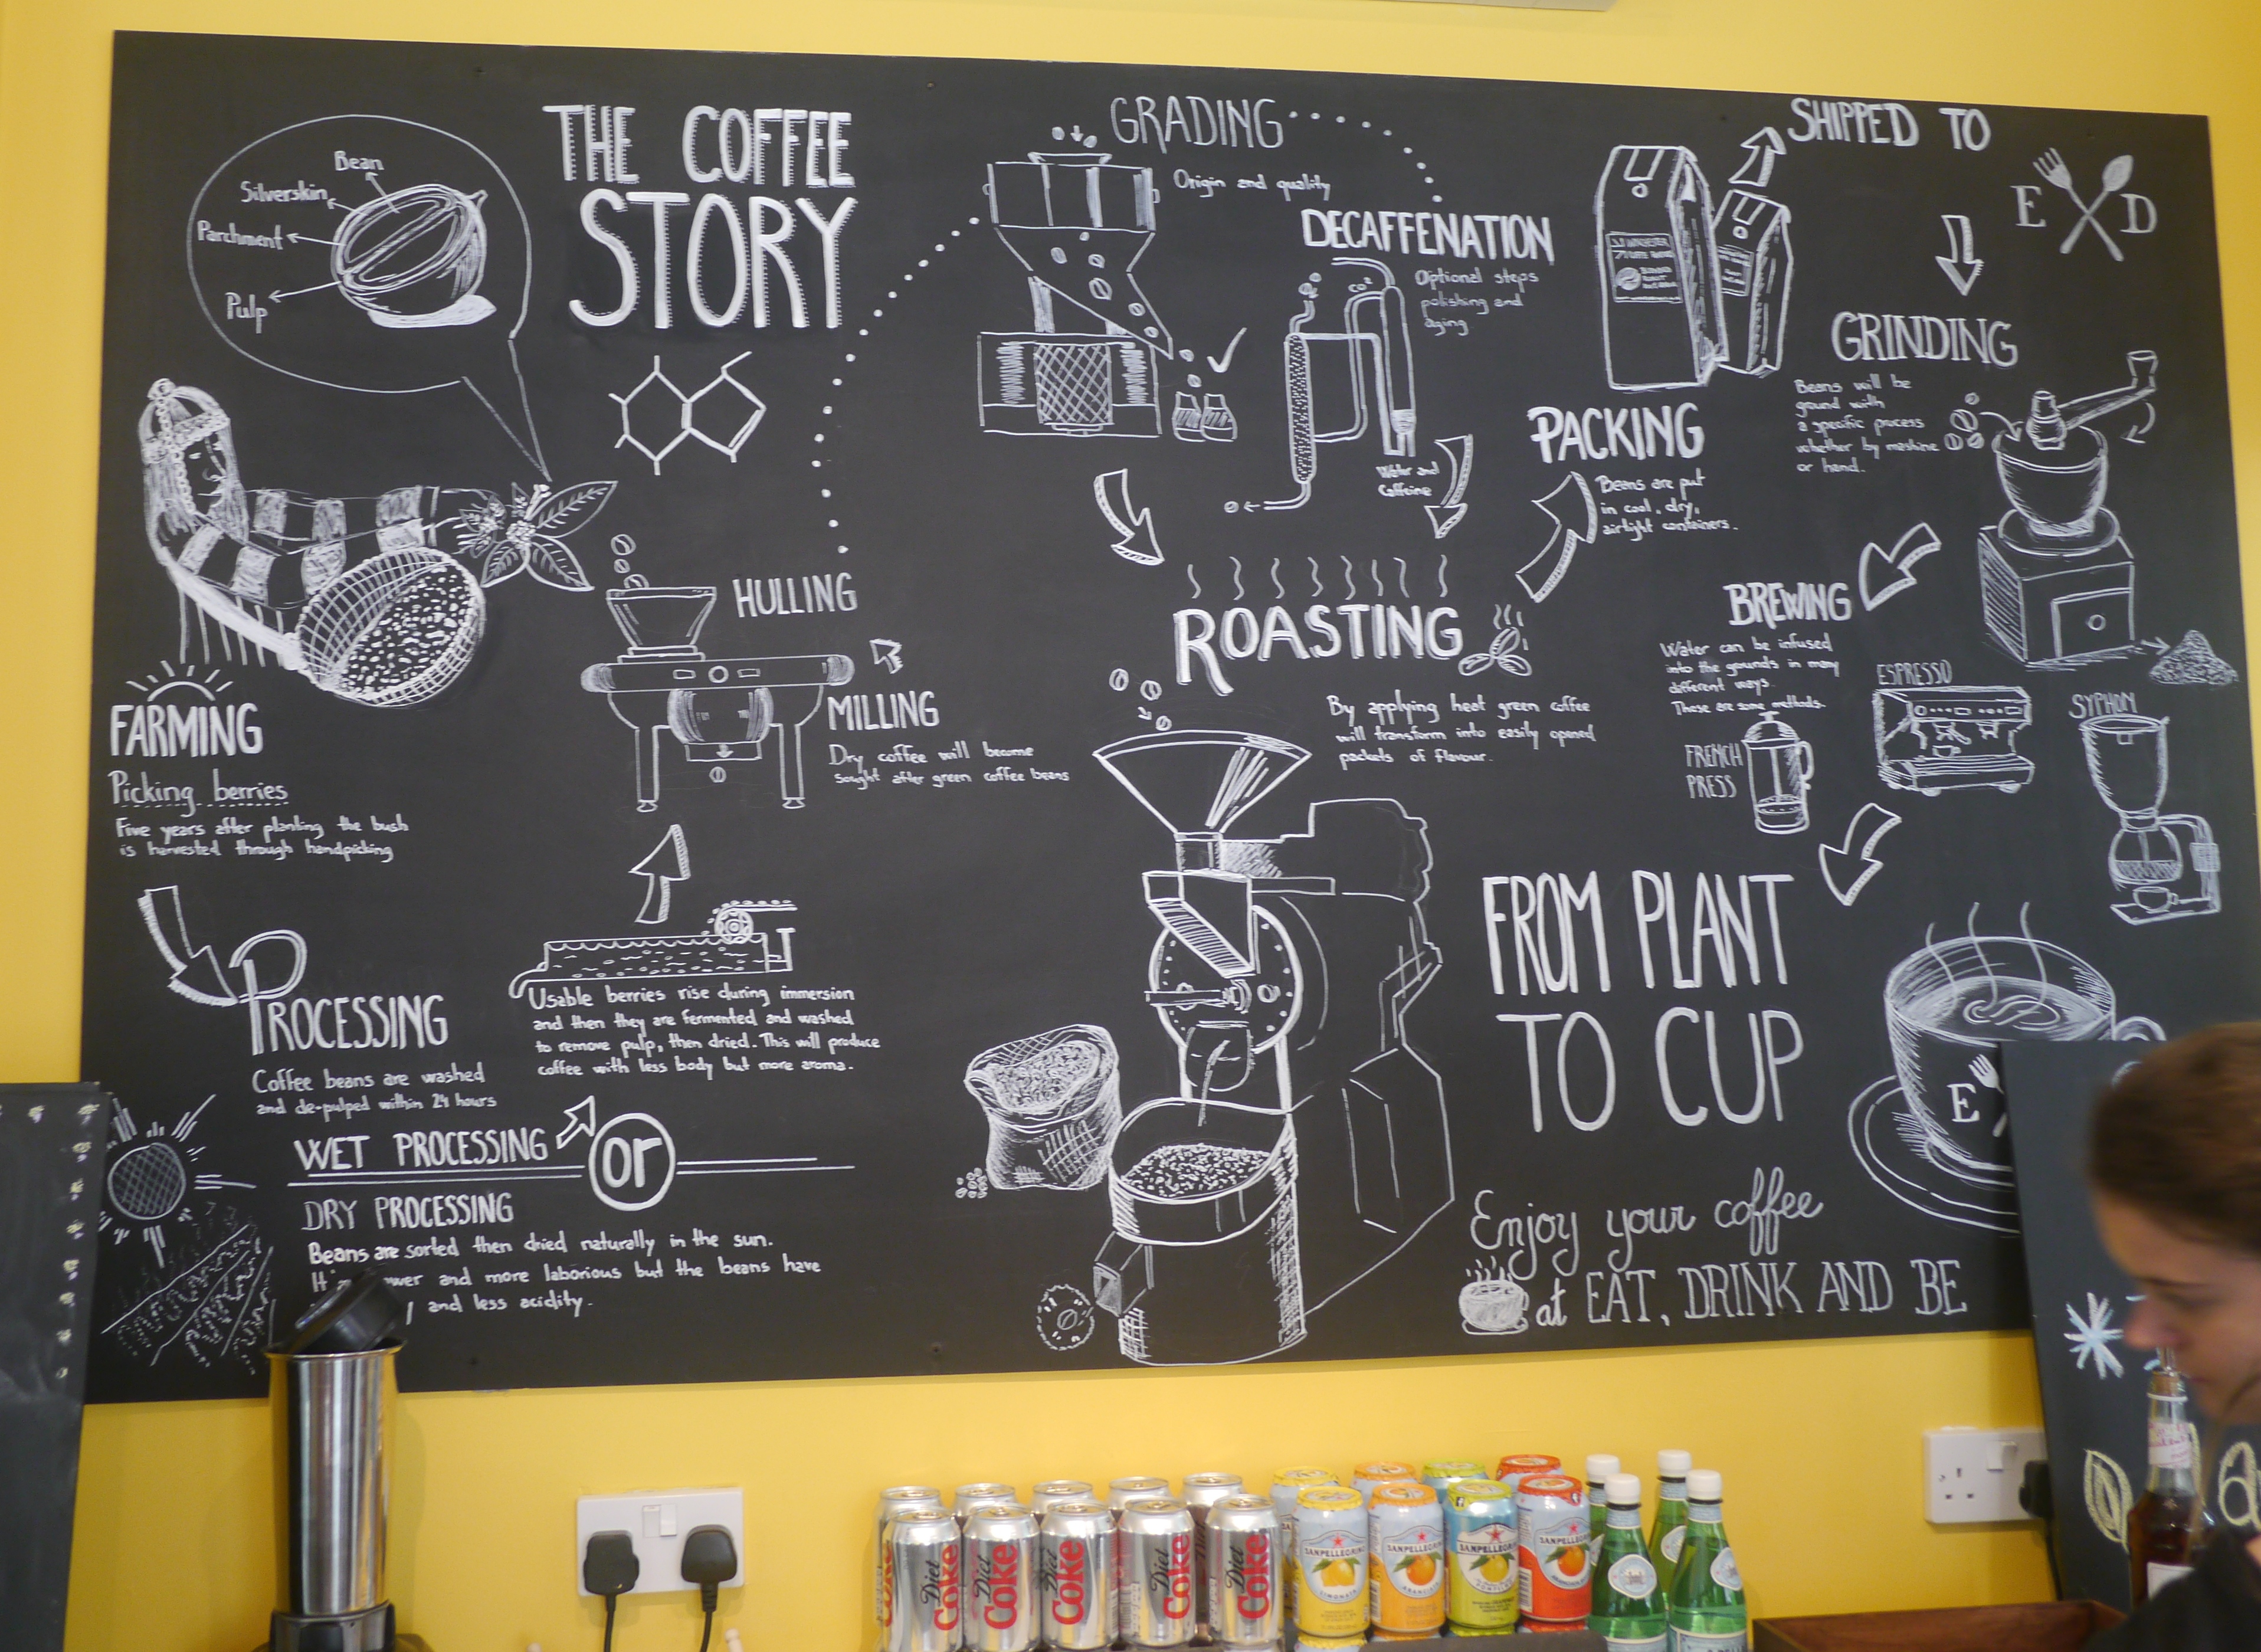 THE COFFEE
STORY
Bean
Silverskin
Parchment
Pulp
FARMING
Picking berries
Five years after planting the bush
is harvested through handpicking
PROCESSING
Coffee beans are washed
and de-pulped within 24 hours
WET PROCESSING
or
Usable berries rise during immersion
and then they are fermented and washed
to remove pulp, then dried. This will produce
coffee with less body but more aroma.
DRY PROCESSING
Beans are sorted then dried naturally in the sun.
and more laborious but the beans have
and less acidity.
HULLING
MILLING
Dry coffee will become
sought after green coffee beans
GRADING
Origin and quality
DECAFFENATION
Optional steps
polishing and
aging
CO²
Water and
Caffeine
ROASTING
By applying heat green coffee
will transform into easily opened
packets of flavour.
PACKING
Beans are put
in cool, dry,
airtight containers.
SHIPPED TO
E D
GRINDING
Beans will be
gound with
a specific process
whether by mashine
or hand.
BREWING
Water can be infused
into the grounds in many
different ways.
These are some methods.
FRENCH
PRESS
ESPRESSO
SYPHON
FROM PLANT
TO CUP
E
Enjoy your coffee
at EAT, DRINK AND BE
Diet Coke
Diet Coke
Coke
Diet Coke
Diet Coke
SANPELLEGRINO
LIMONATA
SANPELLEGRINO
ARANCIATA
SANPELLEGRINO
SANPELLEGRINO
a